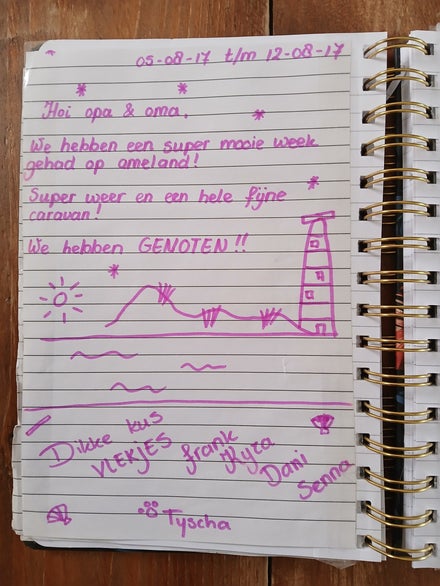 05-08-17 t/m 12-08-17
Hoi opa & oma,
We hebben een super mooie week
gehad op ameland!
Super weer en een hele fijne
caravan!
We hebben GENOTEN!!
Dikke kus
VLEKJES frank
Dani
Senna
Tyscha